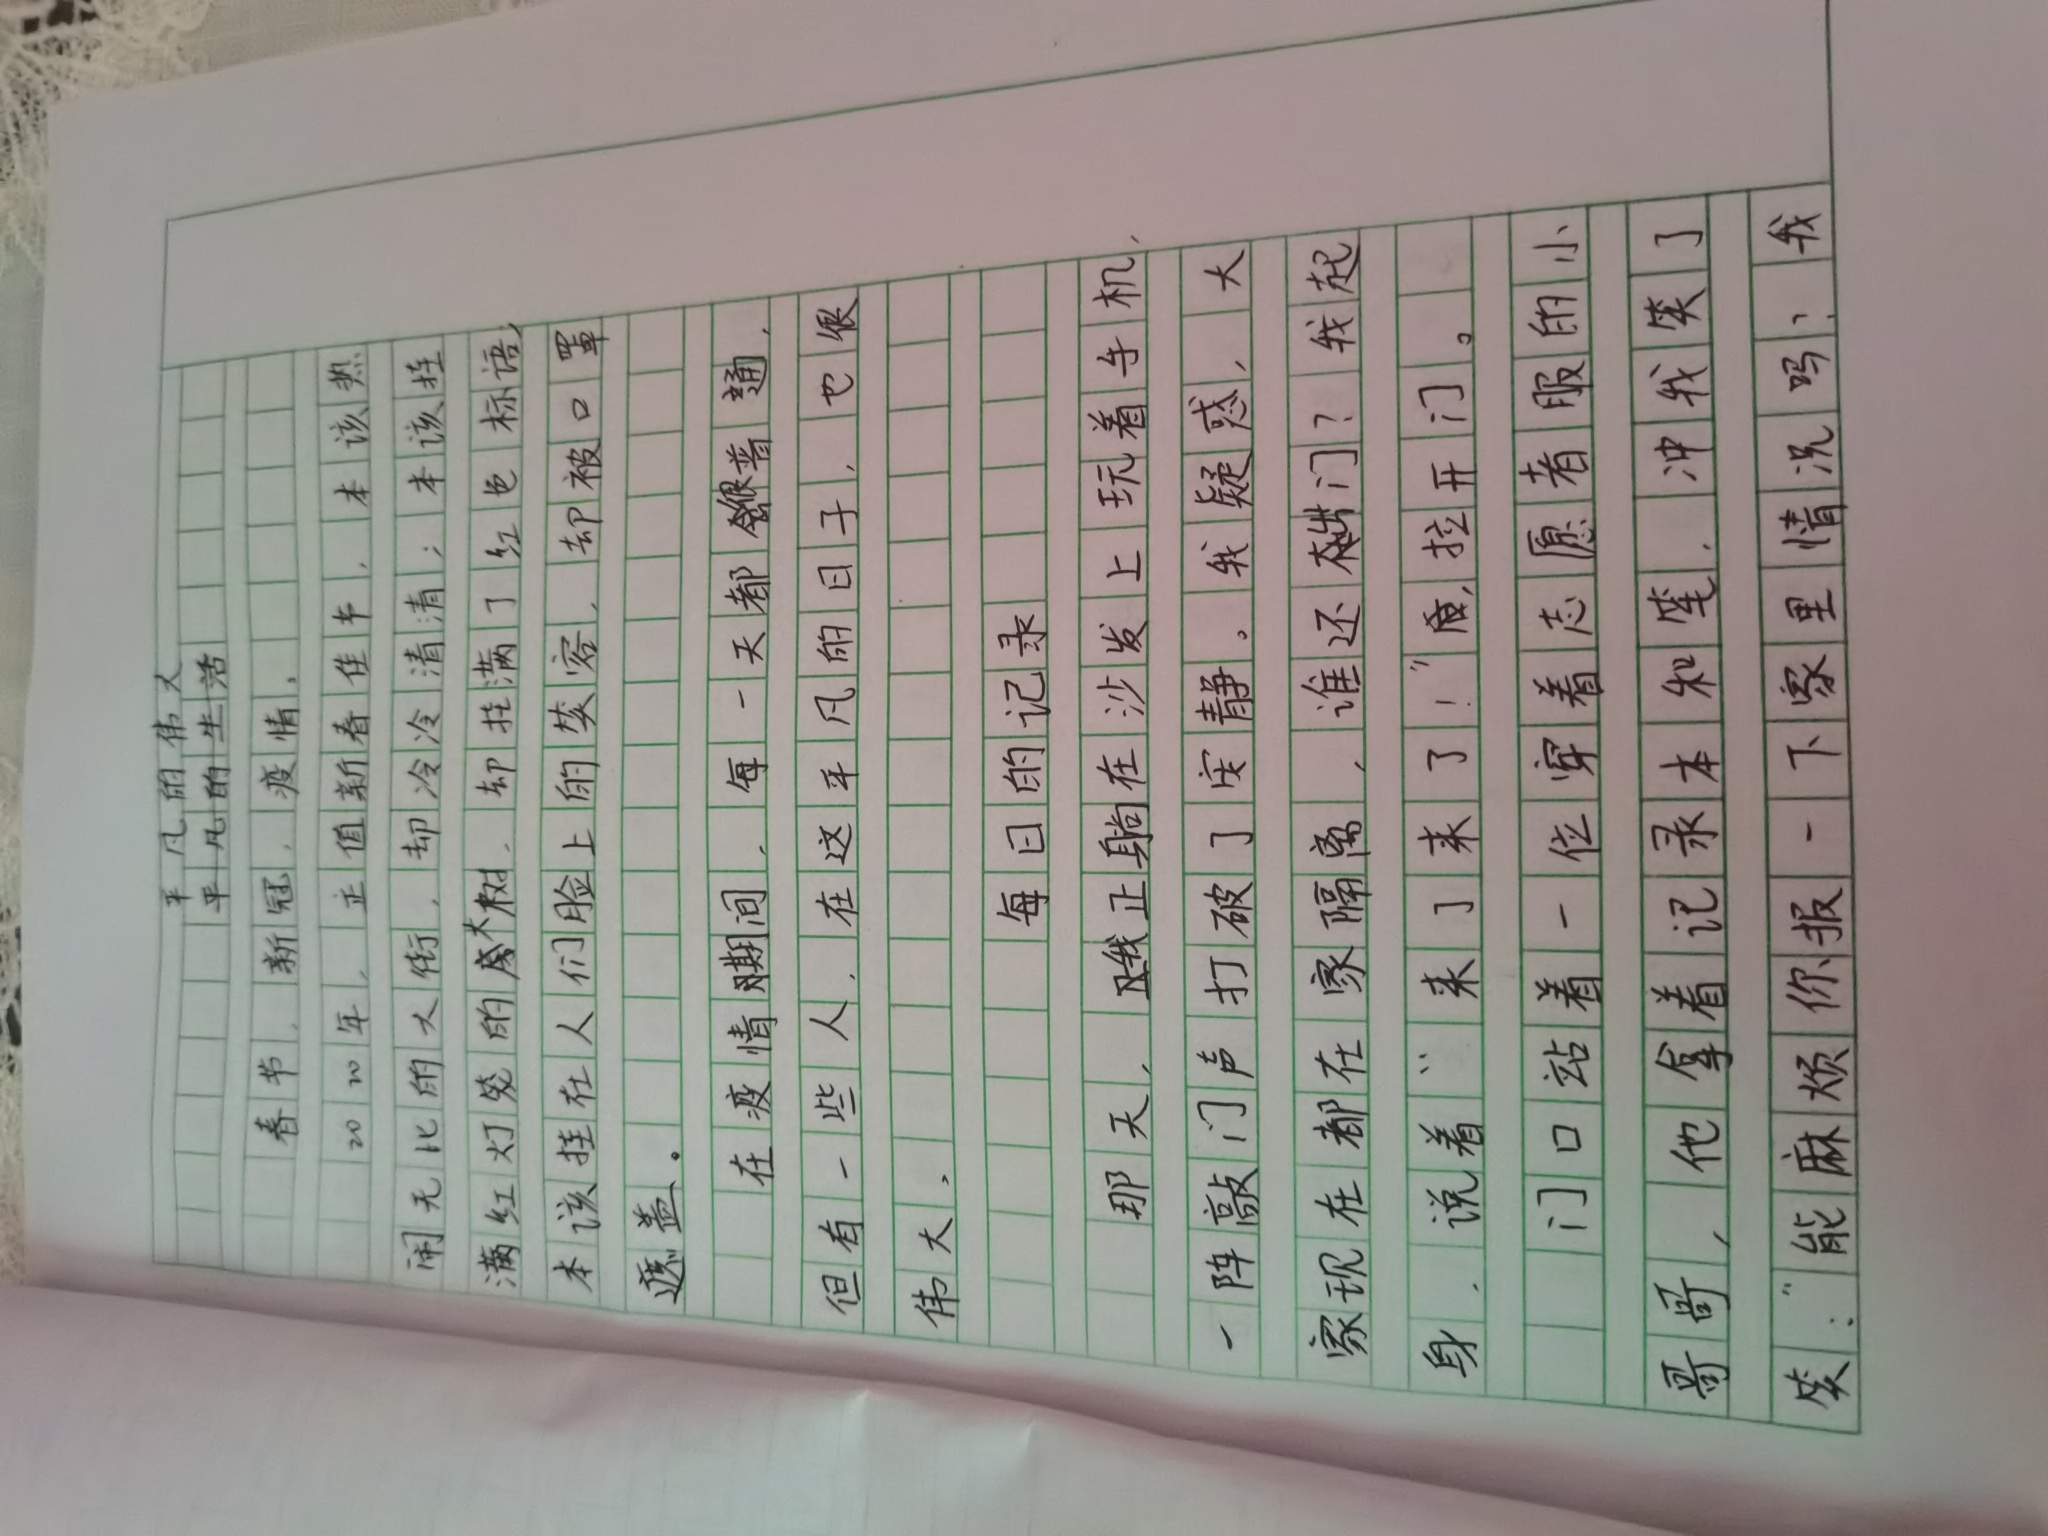 平凡的伟大
平凡的生活
春节，新冠，疫情。
2020年，正值新春佳节，本该热
闹无比的大街，却冷冷清清；本该挂
满红灯笼的大树，却挂满了红色标语，
本该挂在人们脸上的笑容，却被口罩
遮盖。
在疫情期间，每一天都很普通，
但有一些人，在这平凡的日子，也很
伟大。
每日的记录
那天，我正躺在沙发上玩着手机，
一阵敲门声打破了安静。我疑惑，大
家现在都在家隔离，谁还出门？我起
身，说着“来了来了！”，拉开门。
门口站着一位穿着志愿者服的小
哥哥，他拿着记录本和笔，冲我笑了
笑：“能麻烦你报一下家里情况吗？我